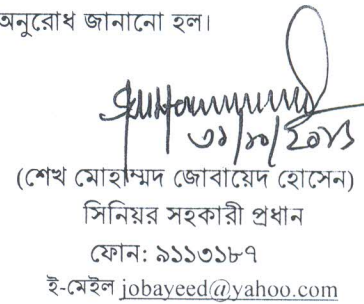 অনুরোধ জানানো হল।
৩১/১০/২০১৩
(শেখ মোহাম্মদ জোবায়েদ হোসেন)
সিনিয়র সহকারী প্রধান
ফোন: ৯১১৩১৮৭
ই-মেইল jobayeed@yahoo.com